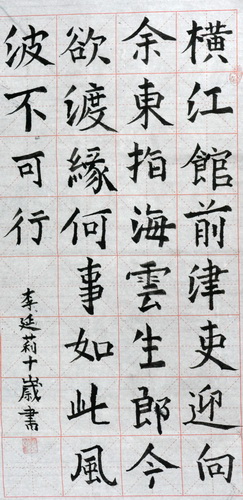 橫江館前津吏迎向
余東指海雲生郎今
欲渡緣何事如此風
波不可行
李延莉十歲書